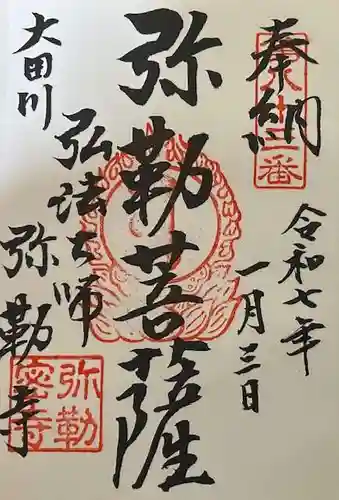 奉納
令和七年
一月三日
弥勒菩薩
弘法大師
大田川
弥勒寺
弥勒
密寺